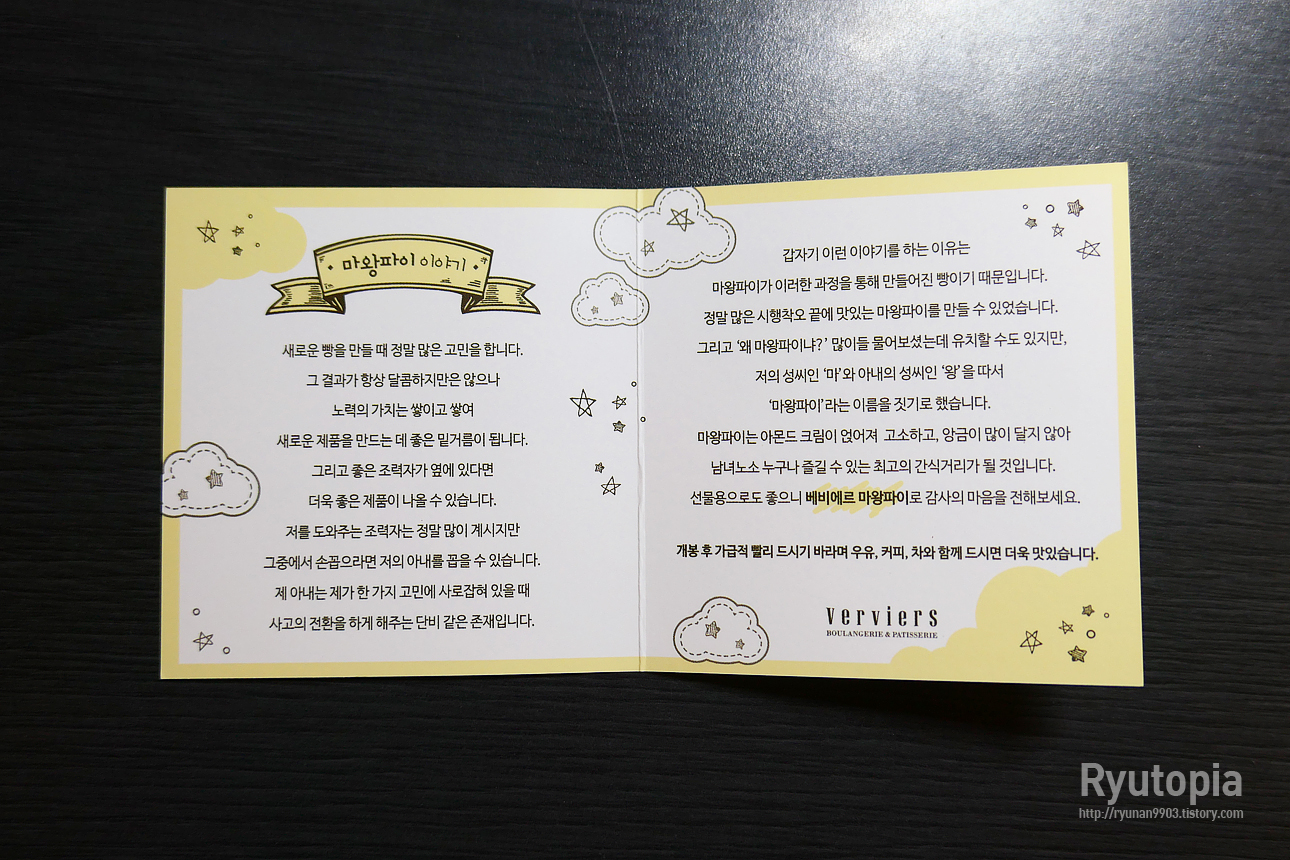 마왕파이 이야기
새로운 빵을 만들 때 정말 많은 고민을 합니다.
그 결과가 항상 달콤하지만은 않으나
노력의 가치는 쌓이고 쌓여
새로운 제품을 만드는 데 좋은 밑거름이 됩니다.
그리고 좋은 조력자가 옆에 있다면
더욱 좋은 제품이 나올 수 있습니다.
저를 도와주는 조력자는 정말 많이 계시지만
그중에서 손꼽으라면 저의 아내를 꼽을 수 있습니다.
제 아내는 제가 한 가지 고민에 사로잡혀 있을 때
사고의 전환을 하게 해주는 단비 같은 존재입니다.
갑자기 이런 이야기를 하는 이유는
마왕파이가 이러한 과정을 통해 만들어진 빵이기 때문입니다.
정말 많은 시행착오 끝에 맛있는 마왕파이를 만들 수 있었습니다.
그리고 ‘왜 마왕파이냐?’ 많이들 물어보셨는데 유치할 수도 있지만,
저의 성씨인 ‘마’와 아내의 성씨인 ‘왕’을 따서
‘마왕파이’라는 이름을 짓기로 했습니다.
마왕파이는 아몬드 크림이 얹어져 고소하고, 앙금이 많이 달지 않아
남녀노소 누구나 즐길 수 있는 최고의 간식거리가 될 것입니다.
선물용으로도 좋으니 베비에르 마왕파이로 감사의 마음을 전해보세요.
개봉 후 가급적 빨리 드시기 바라며 우유, 커피, 차와 함께 드시면 더욱 맛있습니다.
Verviers
BOULANGERIE & PATISSERIE
Ryutopia
http://ryunan9903.tistory.com